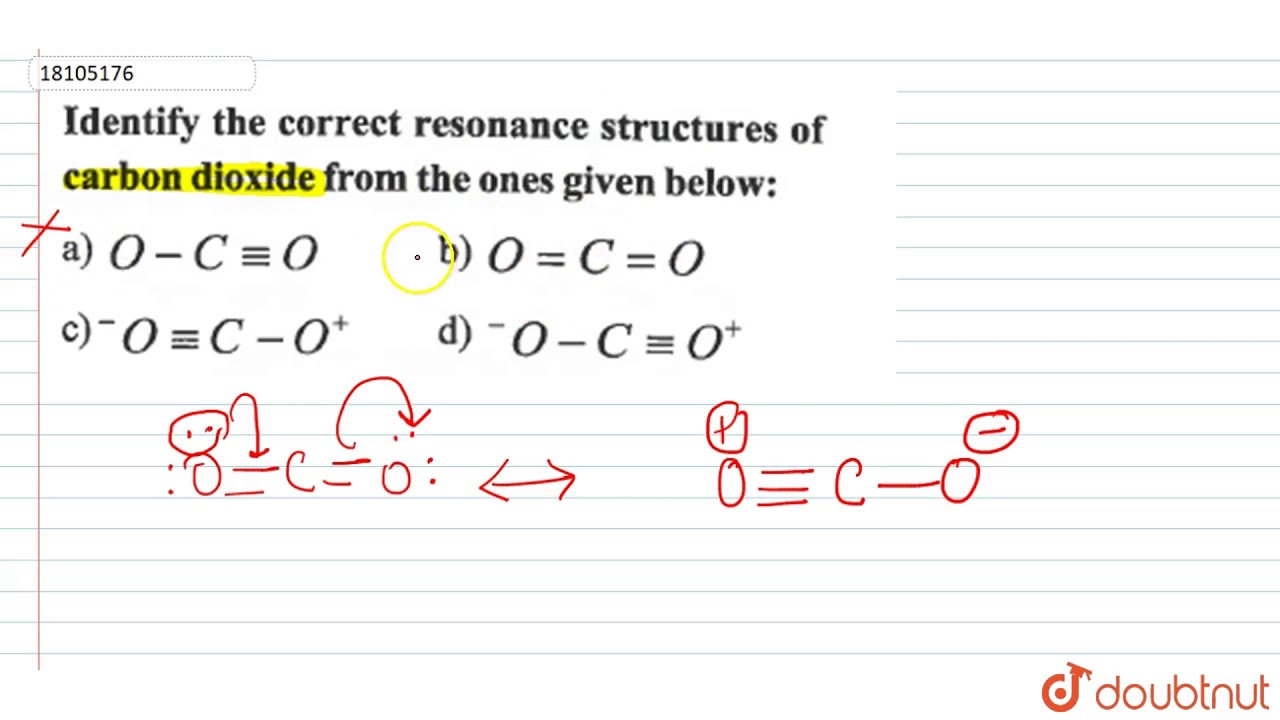 18105176
Identify the correct resonance structures of
carbon dioxide from the ones given below:
a) O – C ≡ O b) O = C = O
c) ⁻O ≡ C – O⁺ d) ⁻O – C ≡ O⁺
:Ö = C = Ö: ⟷ O ≡ C — O
+ −
doubtnut